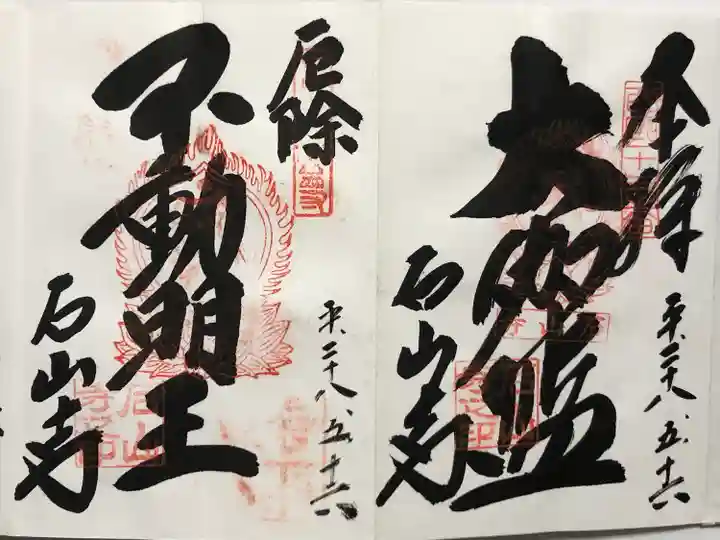 奉拝
平、二十八、五、十六
大伽藍
石山寺
厄除
平、二十八、五、十六
不動明王
石山寺